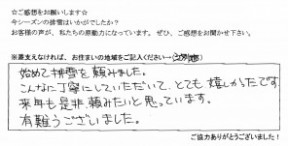 ☆ご感想をお願いします☆
今シーズンの排雪はいかがでしたか？
お客様の声が、私たちの原動力になっています。ぜひ、ご感想をお聞かせ下さい。
※差支えなければ、お住まいの地域をご記入ください→
始めて排雪を頼みました。
こんなに丁寧にしていただいて、とても嬉しかったです
来年も是非頼みたいと思っています。
有難うございました。
ご協力ありがとうございました！